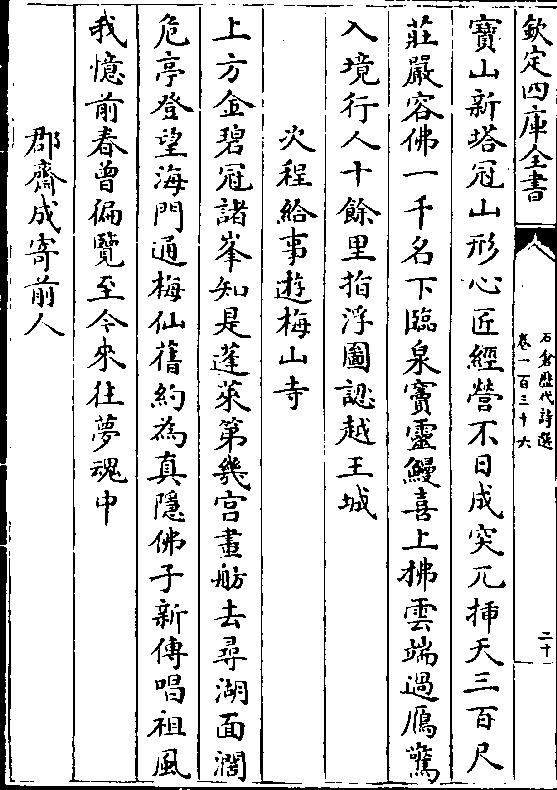 欽定四庫全書
石倉歷代詩選
卷一百三十六
二十
寶山新塔冠山形心匠經營不日成突兀揷天三百尺
莊嚴容佛一千名下臨泉竇靈鰻喜上拂雲端過鴈驚
入境行人十餘里指浮圖認越王城
次程給事遊梅山寺
上方金碧冠諸峯知是蓬萊第幾宫畫舫去尋湖面濶
危亭登望海門通梅仙舊約為真隱佛子新傳唱祖風
我憶前春曾徧覽至今來往夢魂中
郡齋成寄前人